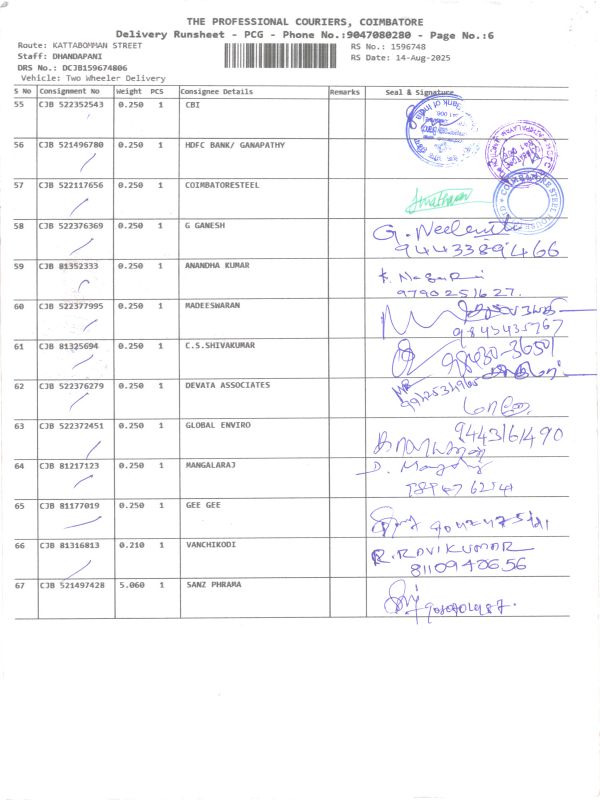 THE PROFESSIONAL COURIERS, COIMBATORE
Delivery Runsheet - PCG - Phone No.:9047080280 - Page No.:6
Route: KATTABOMMAN STREET
RS No.: 1596748
Staff: DHANDAPANI
RS Date: 14-Aug-2025
DRS No.: DCJB159674806
Vehicle: Two Wheeler Delivery
S No Consignment No Weight PCS Consignee Details Remarks Seal & Signature
55 CJB 522352543 0.250 1 CBI
56 CJB 521496780 0.250 1 HDFC BANK/ GANAPATHY
57 CJB 522117656 0.250 1 COIMBATORESTEEL
58 CJB 522376369 0.250 1 G GANESH
9443389466
59 CJB 81352333 0.250 1 ANANDHA KUMAR
9790251627.
60 CJB 522377995 0.250 1 MADEESWARAN
9843435767
61 CJB 81325694 0.250 1 C.S.SHIVAKUMAR
62 CJB 522376279 0.250 1 DEVATA ASSOCIATES
63 CJB 522372451 0.250 1 GLOBAL ENVIRO
9443161490
64 CJB 81217123 0.250 1 MANGALARAJ
65 CJB 81177019 0.250 1 GEE GEE
66 CJB 81316813 0.210 1 VANCHIKODI
R.RAVIKUMAR
8110940656
67 CJB 521497428 5.060 1 SANZ PHRAMA